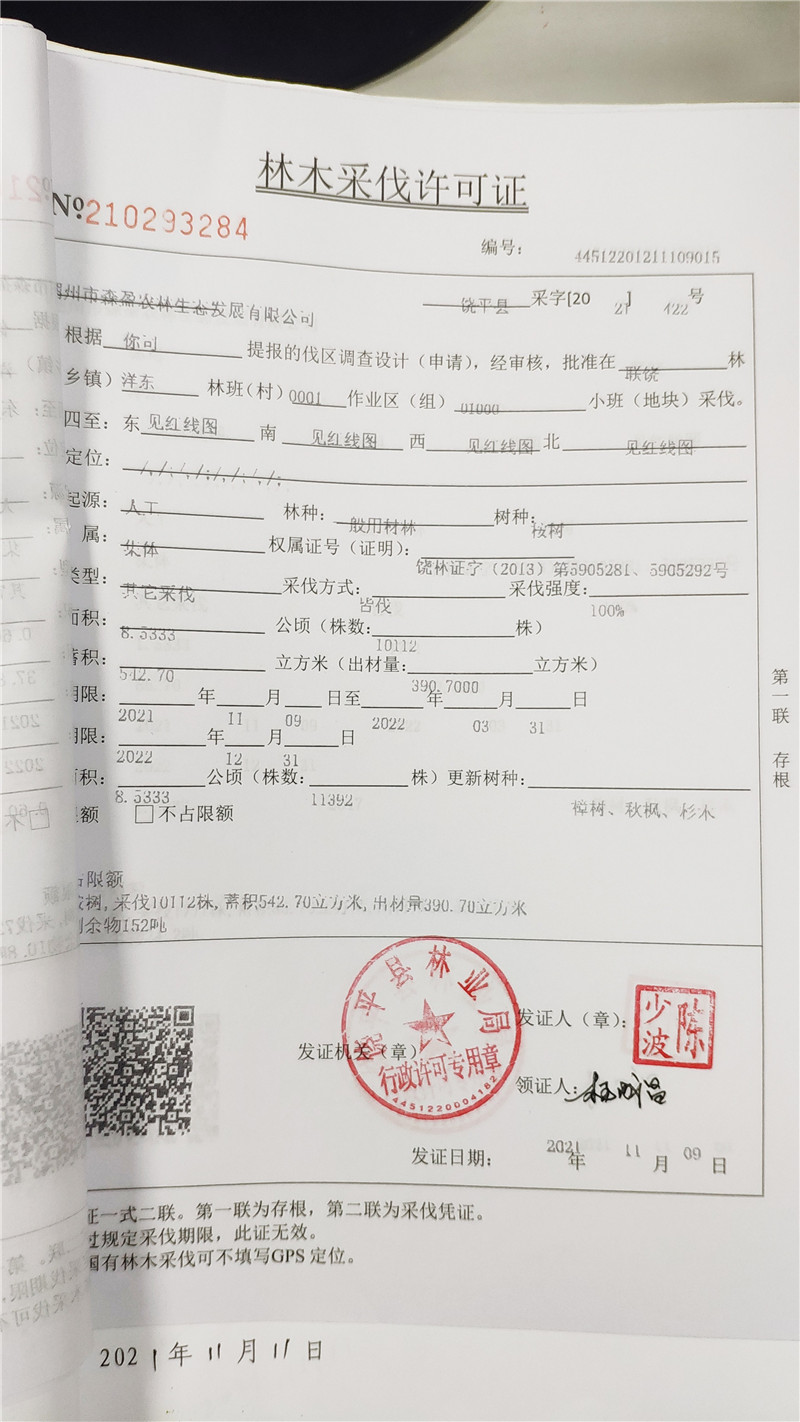 林木采伐许可证
№210293284
编号： 44512201211109015
州市森盈农林生态发展有限公司 饶平县 采字[20 21 ] 422 号
根据 你司 提报的伐区调查设计（申请），经审核，批准在 联饶 林
乡镇）洋东 林班（村）0001 作业区（组） 01000 小班（地块）采伐。
四至：东 见红线图 南 见红线图 西 见红线图 北 见红线图
定位： /,/,/,/,/,/,/,/;
起源： 人工 林种： 一般用材林 树种： 桉树
属： 集体 权属证号（证明）： 饶林证字（2013）第5905281、5905292号
类型： 其它采伐 采伐方式： 皆伐 采伐强度： 100%
面积： 8.5333 公顷（株数： 10112 株）
蓄积： 542.70 立方米（出材量： 390.7000 立方米）
期限： 2021 年 11 月 09 日至 2022 年 03 月 31 日
期限： 2022 年 12 月 31 日
面积： 8.5333 公顷（株数： 11392 株）更新树种： 樟树、秋枫、杉木
额 □不占限额
占限额
树,采伐10112株,蓄积542.70立方米,出材量390.70立方米
余物152吨
第一联 存根
发证机关（章）
饶平县林业局
行政许可专用章
4451220004182
发证人（章）：
陈少波
领证人：
发证日期： 2021 年 11 月 09 日
证一式二联。第一联为存根，第二联为采伐凭证。
过规定采伐期限，此证无效。
国有林木采伐可不填写GPS 定位。
2021年11月11日